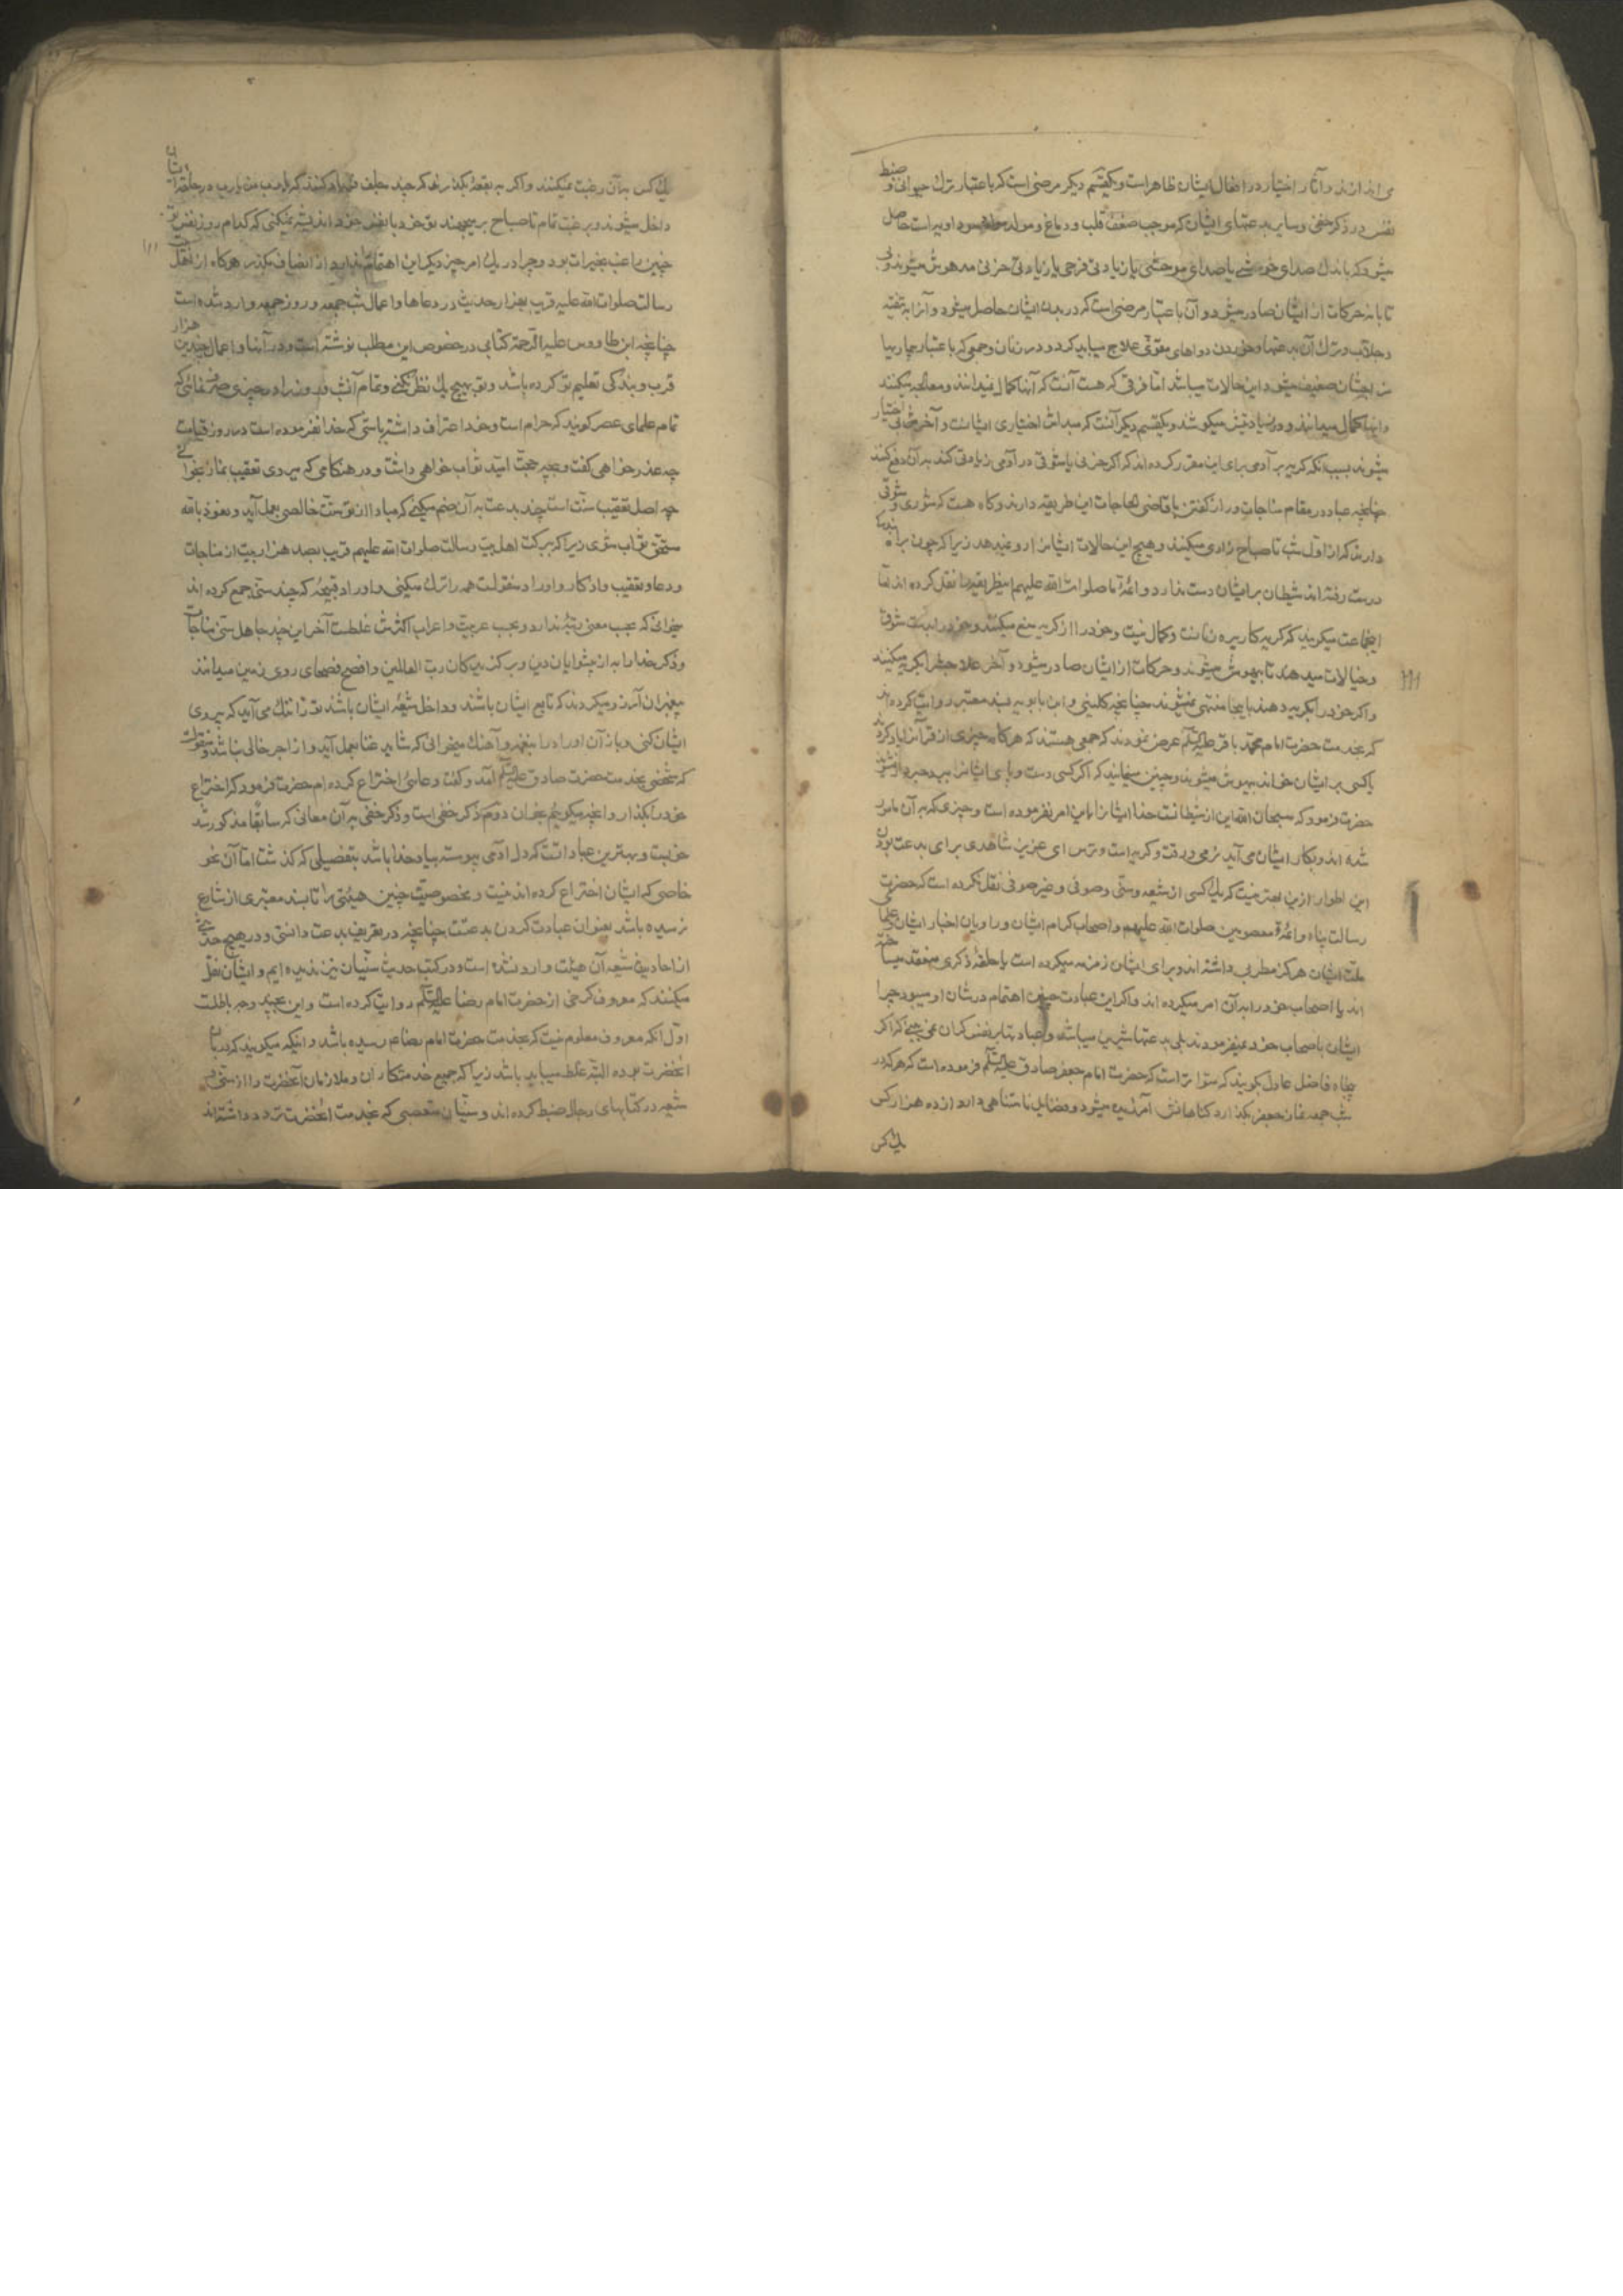 می اندازند و آثار اختیار در افعال ایشان ظاهر است و یکقسم دیگر مرضی است که باعتبار ترک حیوانی و ضبط
نفس در ذکر خفی و سایر بدعتهای ایشان که موجب ضعف قلب و دماغ و مولد سوداویه است حاصل
میشود که باندک صدای خوشی یا صدای موحشی یا زیادتی فرحی یا زیادتی حزنی مدهوش میشوند و بی
تابانه حرکات از ایشان صادر میشود و آن باعتبار مرضی است که در بدن ایشان حاصل میشود و آنرا به تنقیه
و جلاب و ترک آن بدعتها و خوردن دواهای مقوّی علاج میباید کرد و در زنان و جمعی که باعتبار بیماریها
مزاجشان ضعیف میشود این حالات میباشد اما فرقی که هست آنست که آنها کمال نمیدانند و معالجه میکنند
و اینها کمال میدانند و در زیادتیش میکوشند و یکقسم دیگر آنست که مبداش اختیاری ایشانست و آخر بی اختیار
میشوند بسبب آنکه گریه بر آدمی برای این مقرر کرده اند که اگر حزنی یا شوقی در آدمی زیادتی کند به آن دفع کند
چنانچه عباد در مقام مناجات و راز گفتن با قاضی الحاجات این طریقه دارند و گاه هست که شوری و شوقی
دارند که از اول شب تا صباح زاری میکنند و هیچ این حالات ایشانرا رو نمیدهد زیرا که چون براه بندگی
درست رفته اند شیطان بر ایشان دست ندارد و ائمّهٔ ما صلوات الله علیهم این طریقه را نقل کرده اند اما
اینجماعت میگویند که گریه کار پیره زنانست و کمال نیست و خود را از گریه منع میکنند و خود را بدست شوق
و خیالات میدهند تا بیهوش میشوند و حرکات از ایشان صادر میشود و آخر علاجش بگریه میکنند
و اگر خود را بگریه دهند باینجا منتهی نمیشوند چنانچه کلینی و ابن بابویه بسند معتبر روایت کرده اند
که بخدمت حضرت امام محمد باقر علیه السلام عرض نمودند که جمعی هستند که هرگاه چیزی از قرآنرا یاد کردند
یا کسی بر ایشان خواند بیهوش میشوند و چنین مینمایند که اگر کسی دست و پای ایشانرا ببرد خبردار نشوند
حضرت فرمود که سبحان الله این از شیطانست خدا ایشانرا باین امر نفرموده است و چیزی که به آن مامور
شده اند و بکار ایشان می آید نرمی و رقت و گریه است و ترس ای عزیز شاهدی برای بدعت بودن
این اطوار ازین بهتر نیست که یک کسی از شیعه و سنّی و صوفی و غیر صوفی نقل نکرده است که حضرت
رسالت پناه و ائمّهٔ معصومین صلوات الله علیهم و اصحاب کرام ایشان و راویان اخبار ایشان و علمای
ملّت ایشان هرگز مطربی داشته اند و برای ایشان زمزمه میکرده است یا حلقهٔ ذکری منعقد میساخته
اند یا اصحاب خود را به آن امر میکرده اند و اگر این عبادت چنین اهتمام در شان او میبود چرا
ایشان باصحاب خود نمیفرمودند بلی بدعتها شیرین میباشد و عبادتها بر نفس گران نمی بینی که اگر
پنجاه فاضل عادل بگویند که متواتر است که حضرت امام جعفر صادق علیه السلام فرموده است که هر که در
شب جمعه نماز جعفر بگذارد گناهانش آمرزیده میشود و فضایل نامتناهی دارد از ده هزار کس
یک کس
یک کس به آن رغبت نمیکنند و اگر به بقعهٔ بگذرند که چند جلف فریاد کنند که یارب من یارب در حلقهٔ ایشان
داخل میشوند و برغبت تمام تا صباح بر میجهند تو خود با نفس خود اندیشه نمیکنی که کدام روز نفس تو
چنین راغب بخیرات بود و چرا در یک امر خیر دیگر این اهتمام ندارد از انصاف مگذر هرگاه از اهل بیت
رسالت صلوات الله علیه قریب بهزار حدیث در دعاها و اعمال شب جمعه و روز جمعه وارد شده است
چنانچه ابن طاووس علیه الرحمة کتابی در خصوص این مطلب نوشته است و در آنها و اعمال چندین هزار
قرب و بندگی تعلیم تو کرده باشد و تو بهیچ یک نظر نکنی و تمام آن شب و روز را در چیزی صرف نمائی که
تمام علمای عصر گویند که حرام است و خود اعتراف داشته باشی که خدا نفرموده است در روز قیامت
چه عذر خواهی گفت و بچه حجت امید ثواب خواهی داشت و در هنگامی که میروی تعقیب نماز بخوانی
چه اصل تعقیب سنّت است چند بدعت به آن ضم میکنی که مبادا از تو سنّت خالصی بعمل آید و نعوذ بالله
مستحق ثواب شوی زیرا که ببرکت اهل بیت رسالت صلوات الله علیهم قریب بصد هزار بیت از مناجات
و دعا و تعقیب و اذکار و اوراد منقولست همه را ترک میکنی و اوراد قبیحهٔ که چند سنّی جمع کرده اند
میخوانی که بحسب معنی رتبهٔ ندارد و بحسب عربیت و اعراب اکثرش غلطست آخر این چند جاهل سنّی مناجات
و ذکر خدا را به از پیشوایان دین و برگزیدگان رب العالمین و افصح فصحای روی زمین میدانند
پیغمبران آرزو میکردند که تابع ایشان باشند و داخل شیعهٔ ایشان باشند تو را ننگ می آید که پیروی
ایشان کنی و باز آن اوراد را بنغمه و آهنگ میخوانی که شاید غنا بعمل آید و از اجر خالی نباشد و منقولست
که شخصی بخدمت حضرت صادق علیه السلام آمد و گفت دعائی اختراع کرده ام حضرت فرمود که اختراع
خود را بگذار و آنچه میگویم بخوان دوّم ذکر خفی است و ذکر خفی به آن معانی که سابقا مذکور شد
خوبست و بهترین عبادات است که دل آدمی پیوسته بیاد خدا باشد بتفصیلی که گذشت اما آن نحو
خاصی که ایشان اختراع کرده اند نیست و بخصوصیت چنین هیئتی را تا بسند معتبری از شارع
نرسیده باشد بعنوان عبادت کردن بدعتست چنانچه در تعریف بدعت دانستی و در هیچ حدیثی
از احادیث شیعه آن هیئت وارد نشده است و در کتب حدیث سنّیان نیز ندیده ایم و ایشان نقل
میکنند که معروف کرخی از حضرت امام رضا علیه السلام روایت کرده است و این بچند وجه باطلست
اوّل آنکه معروف معلوم نیست که بخدمت حضرت امام رضا ع رسیده باشد و اینکه میگویند که دربان
آنحضرت بوده البته غلط میباید باشد زیرا که جمیع خدمتکاران و ملازمان آنحضرت را از سنّی و
شیعه در کتابهای رجال ضبط کرده اند و سنّیان متعصبی که بخدمت آنحضرت تردد داشته اند